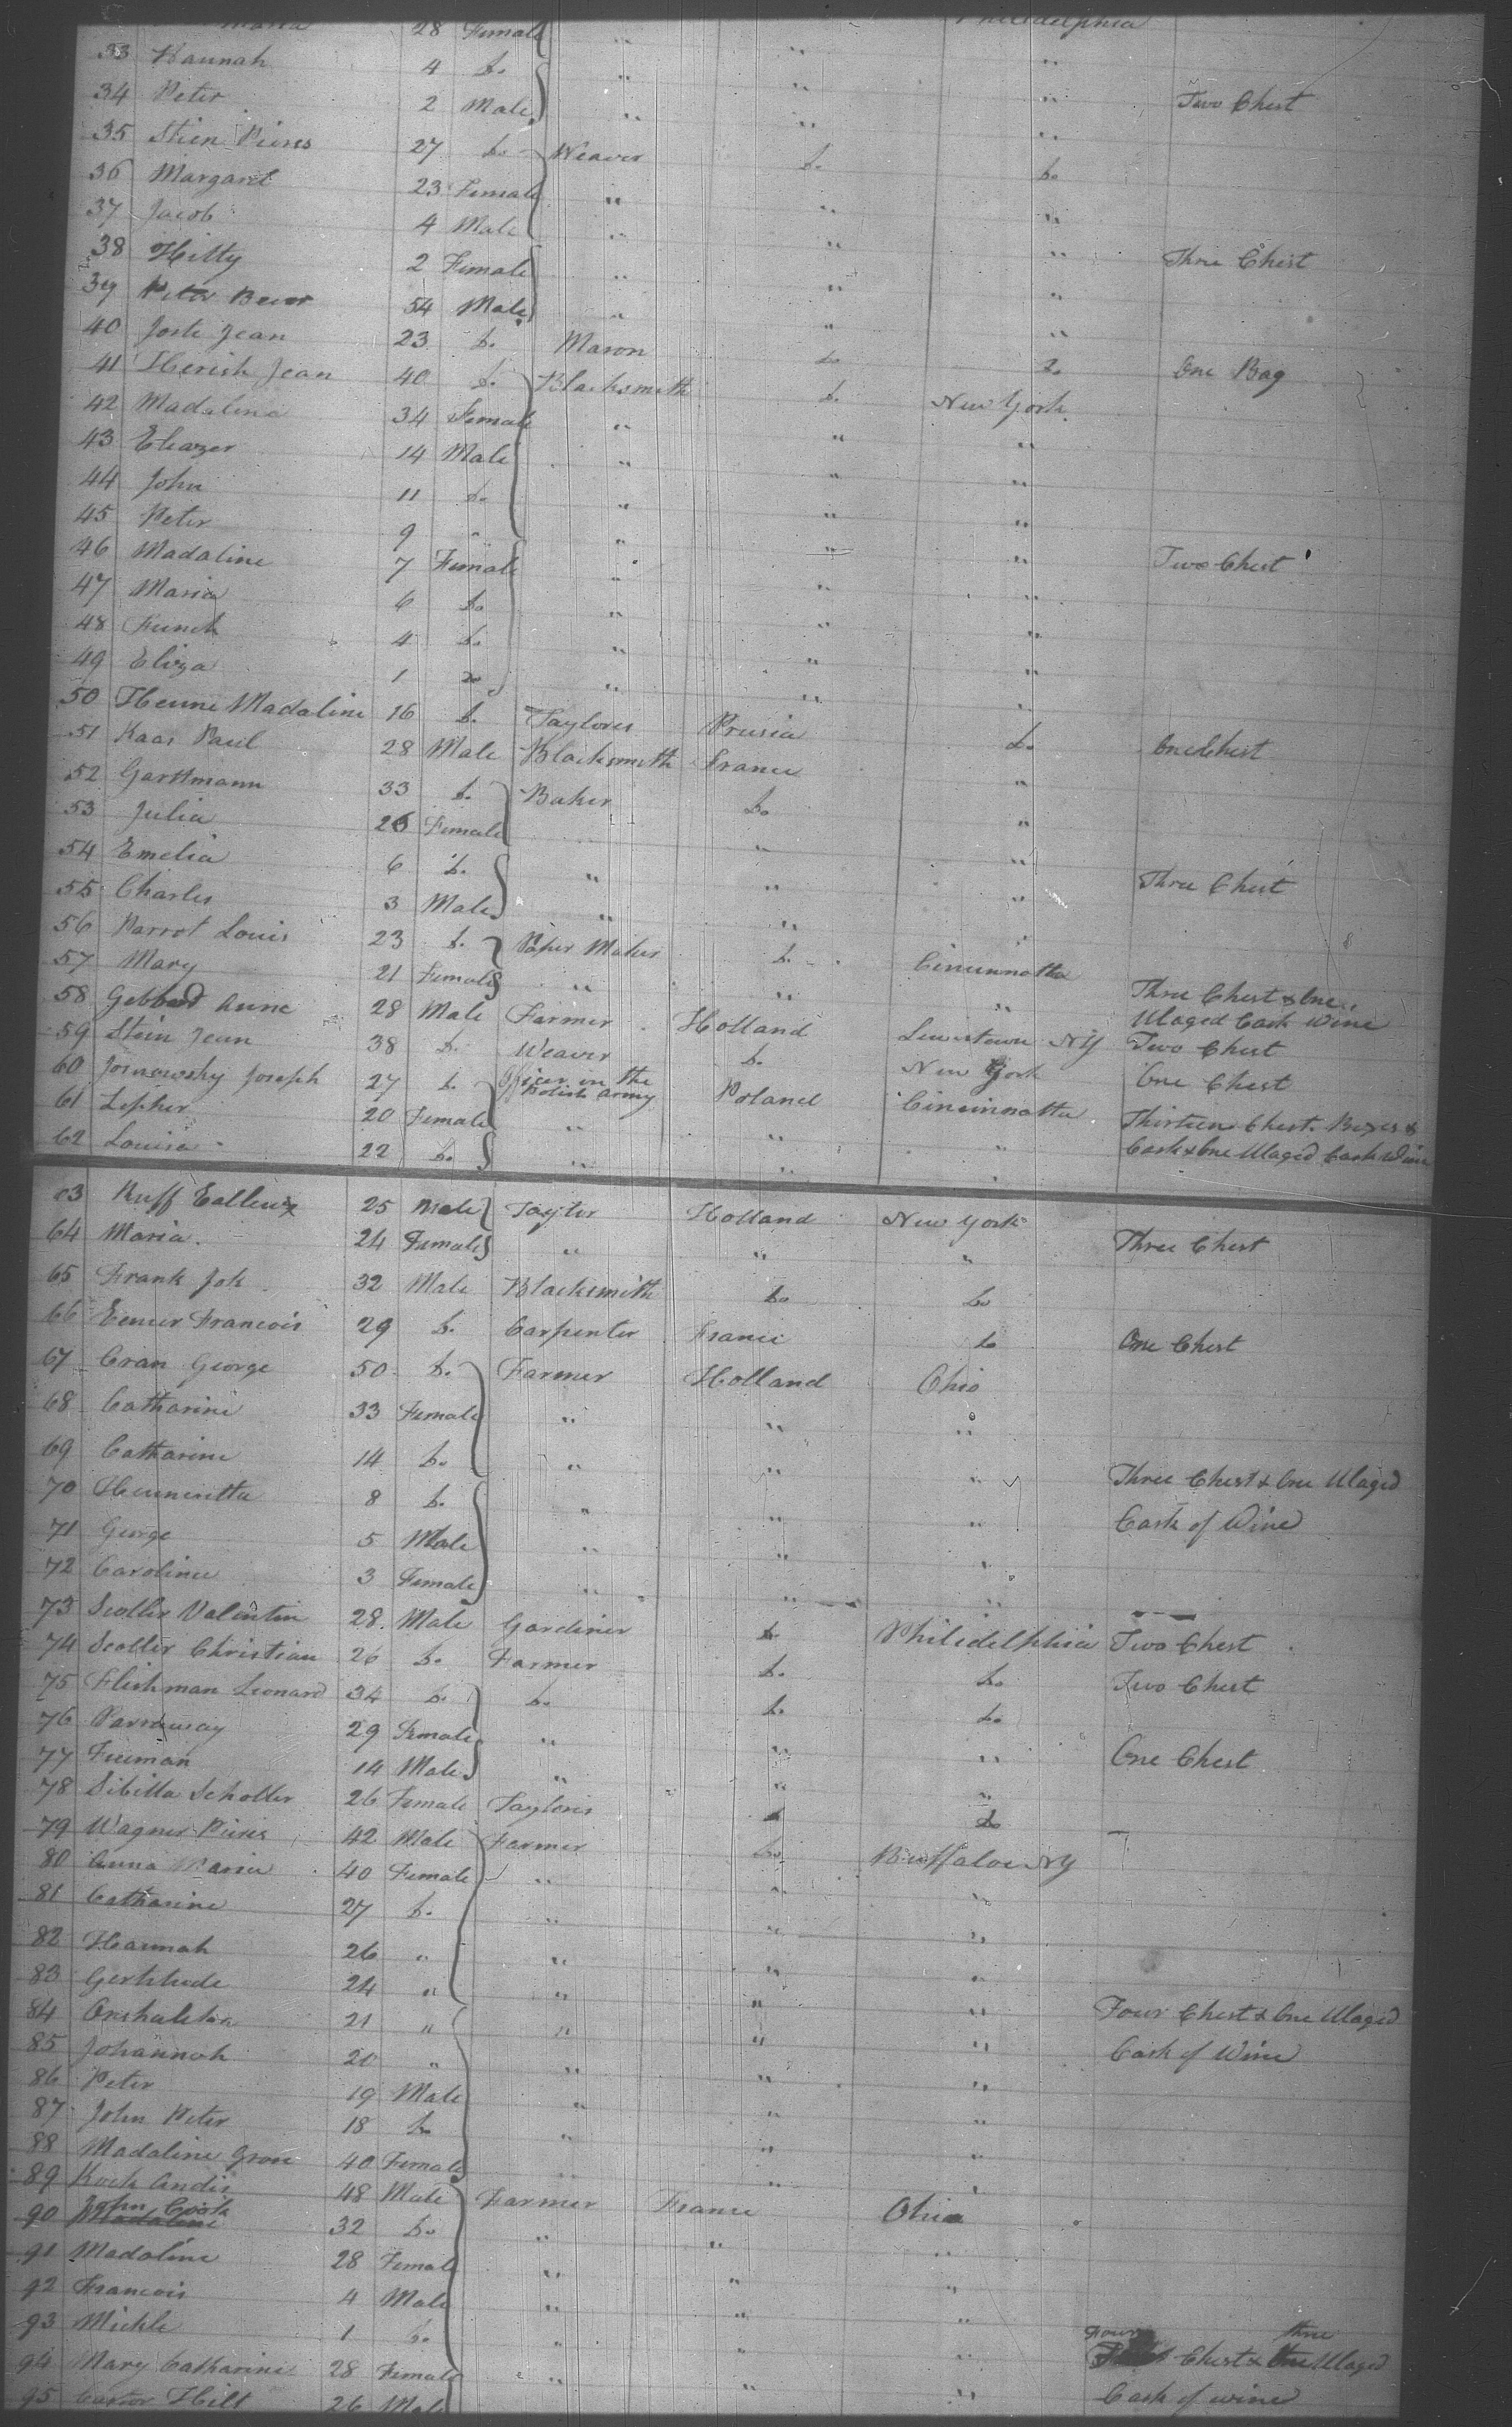 Maria 28 Female " " Philadelphia
33 Hannah 4 Do " " "
34 Peter 2 Male " " " Two Chest
35 Stien Pieres 27 Do Weaver Do Do
36 Margaret 23 Female " " "
37 Jacob 4 Male " " "
38 Hitty 2 Female " " " Three Chest
39 Peter 54 Male " " "
40 Joste Jean 23 Do Mason Do Do One Bag
41 Herish Jean 40 Do Blacksmith Do New York
42 Madalina 34 Female " " "
43 Eleazer 14 Male " " "
44 John 11 Do " " "
45 Peter 9 " " " "
46 Madaline 7 Female " " " Two Chest
47 Maria 6 Do " " "
48 4 Do " " "
49 Eliza 1 Do " " "
50 Henne Madaline 16 Do Taylores Prusia Do One Chest
51 Kaas Paul 28 Male Blacksmith France "
52 Garttmann 33 Do Baker Do "
53 Julia 26 Female " "
54 Emelia 6 Do " " " Three Chest
55 Charles 3 Male " " "
56 Parrot Louis 23 Do Paper Maker Do Cincinnatta
57 Mary 21 Female " " " Three Chest & One
58 Gebbard Anne 28 Male Farmer Holland Lewistown NY Ulaged Cask Wine
59 Stein Jean 38 Do Weaver Do New York Two Chest
60 Joseph 27 Do Officer in the Polish Army Poland Cincinnatta One Chest
61 20 Female " " " Thirteen Chest Boxes &
62 Louisa 22 Do " " " Cask & One Ulaged Cask Wine
63 Ruff 25 Male Taylor Holland New York
64 Maria 24 Female " " " Three Chest
65 Frank Joh 32 Male Blacksmith Do Do
66 Francois 29 Do Carpenter France Do One Chest
67 Cran George 50 Do Farmer Holland Ohio
68 Catharine 33 Female " " "
69 Catharine 14 Do " " " Three Chest & One Ulaged
70 Hennerietta 8 Do " " " Cask of Wine
71 George 5 Male " " "
72 Caroline 3 Female " " "
73 Scoller Valentin 28 Male Gardiner Do Philidelphia Two Chest
74 Scoller Christian 26 Do Farmer Do Do Two Chest
75 Flishman Leonard 34 Do Do Do Do
76 29 Female " " " One Chest
77 Freeman 14 Male " " "
78 Sibilla Scholler 26 Female Taylores Do Do
79 Wagner Pieres 42 Male Farmer Do Buffaloe NY
80 Anna Maria 40 Female " " "
81 Catharine 27 Do " " "
82 Hannah 26 " " " "
83 Gertrude 24 " " " "
84 21 " " " " Four Chest & One Ulaged
85 Johannah 20 " " " " Cask of Wine
86 Peter 19 Male " " "
87 John Peter 18 Do " " "
88 Madaline Grone 40 Female " " "
89 Koch Andis 48 Male Farmer France Ohio
90 John 32 Do " " "
91 Madaline 28 Female " " "
92 Francois 4 Male " " "
93 Mickle 1 Do " " " Four three
94 Mary Catharine 28 Female " " " Chest & Ulaged
95 Castor Hilt 26 Male " " Cask of wine